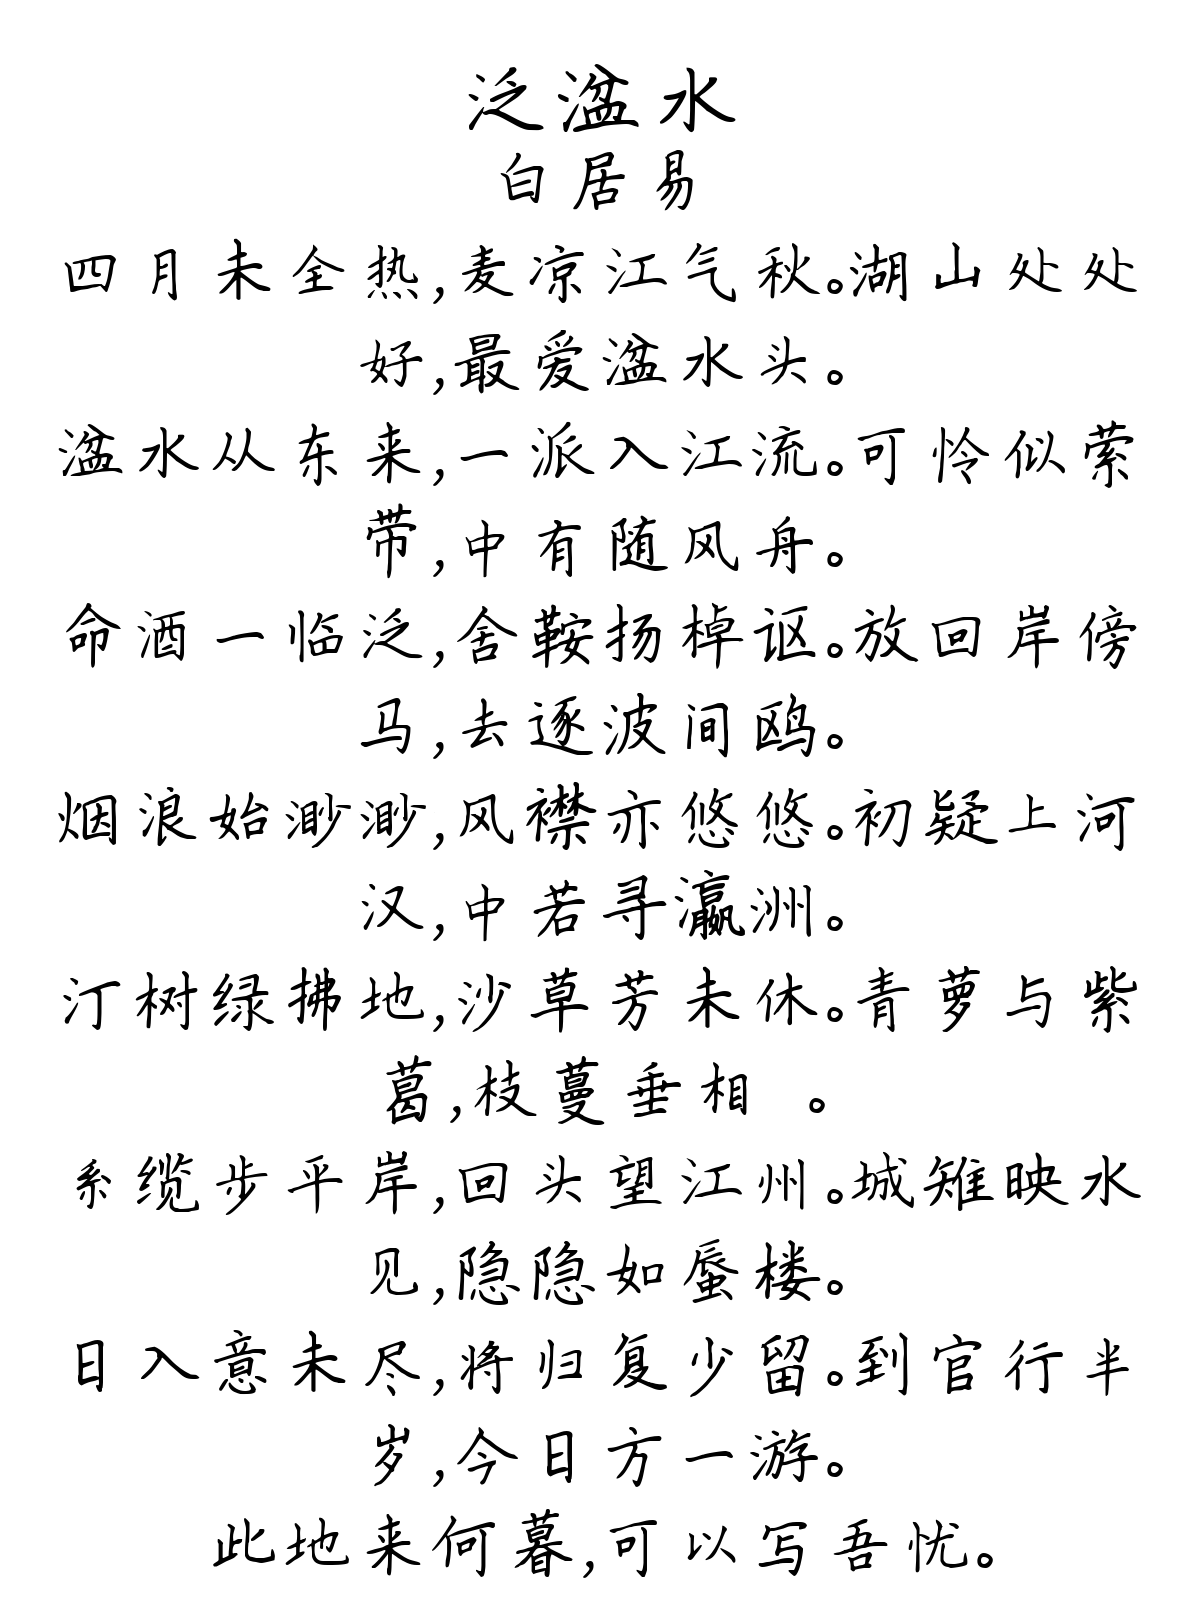 泛湓水
白居易
四月未全热,麦凉江气秋。湖山处处
好,最爱湓水头。
湓水从东来,一派入江流。可怜似萦
带,中有随风舟。
命酒一临泛,舍鞍扬棹讴。放回岸傍
马,去逐波间鸥。
烟浪始渺渺,风襟亦悠悠。初疑上河
汉,中若寻瀛洲。
汀树绿拂地,沙草芳未休。青萝与紫
葛,枝蔓垂相 。
系缆步平岸,回头望江州。城雉映水
见,隐隐如蜃楼。
日入意未尽,将归复少留。到官行半
岁,今日方一游。
此地来何暮,可以写吾忧。